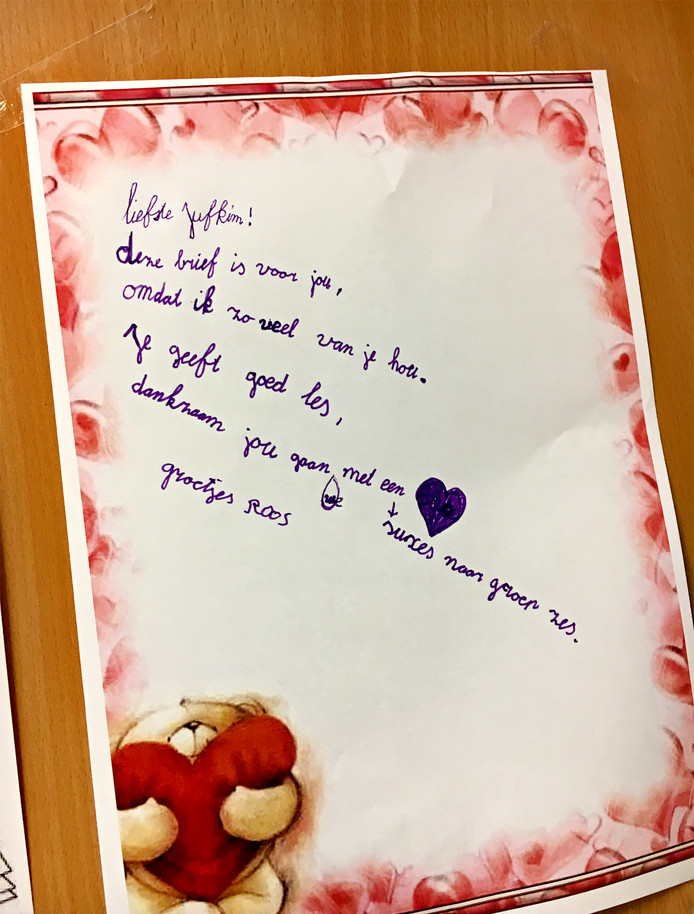 liefste Jufkim!
deze brief is voor jou,
omdat ik zo veel van je hou.
Je geeft goed les,
dankzaam jou gaan met een
we
sukses naar groep zes.
groetjes Roos